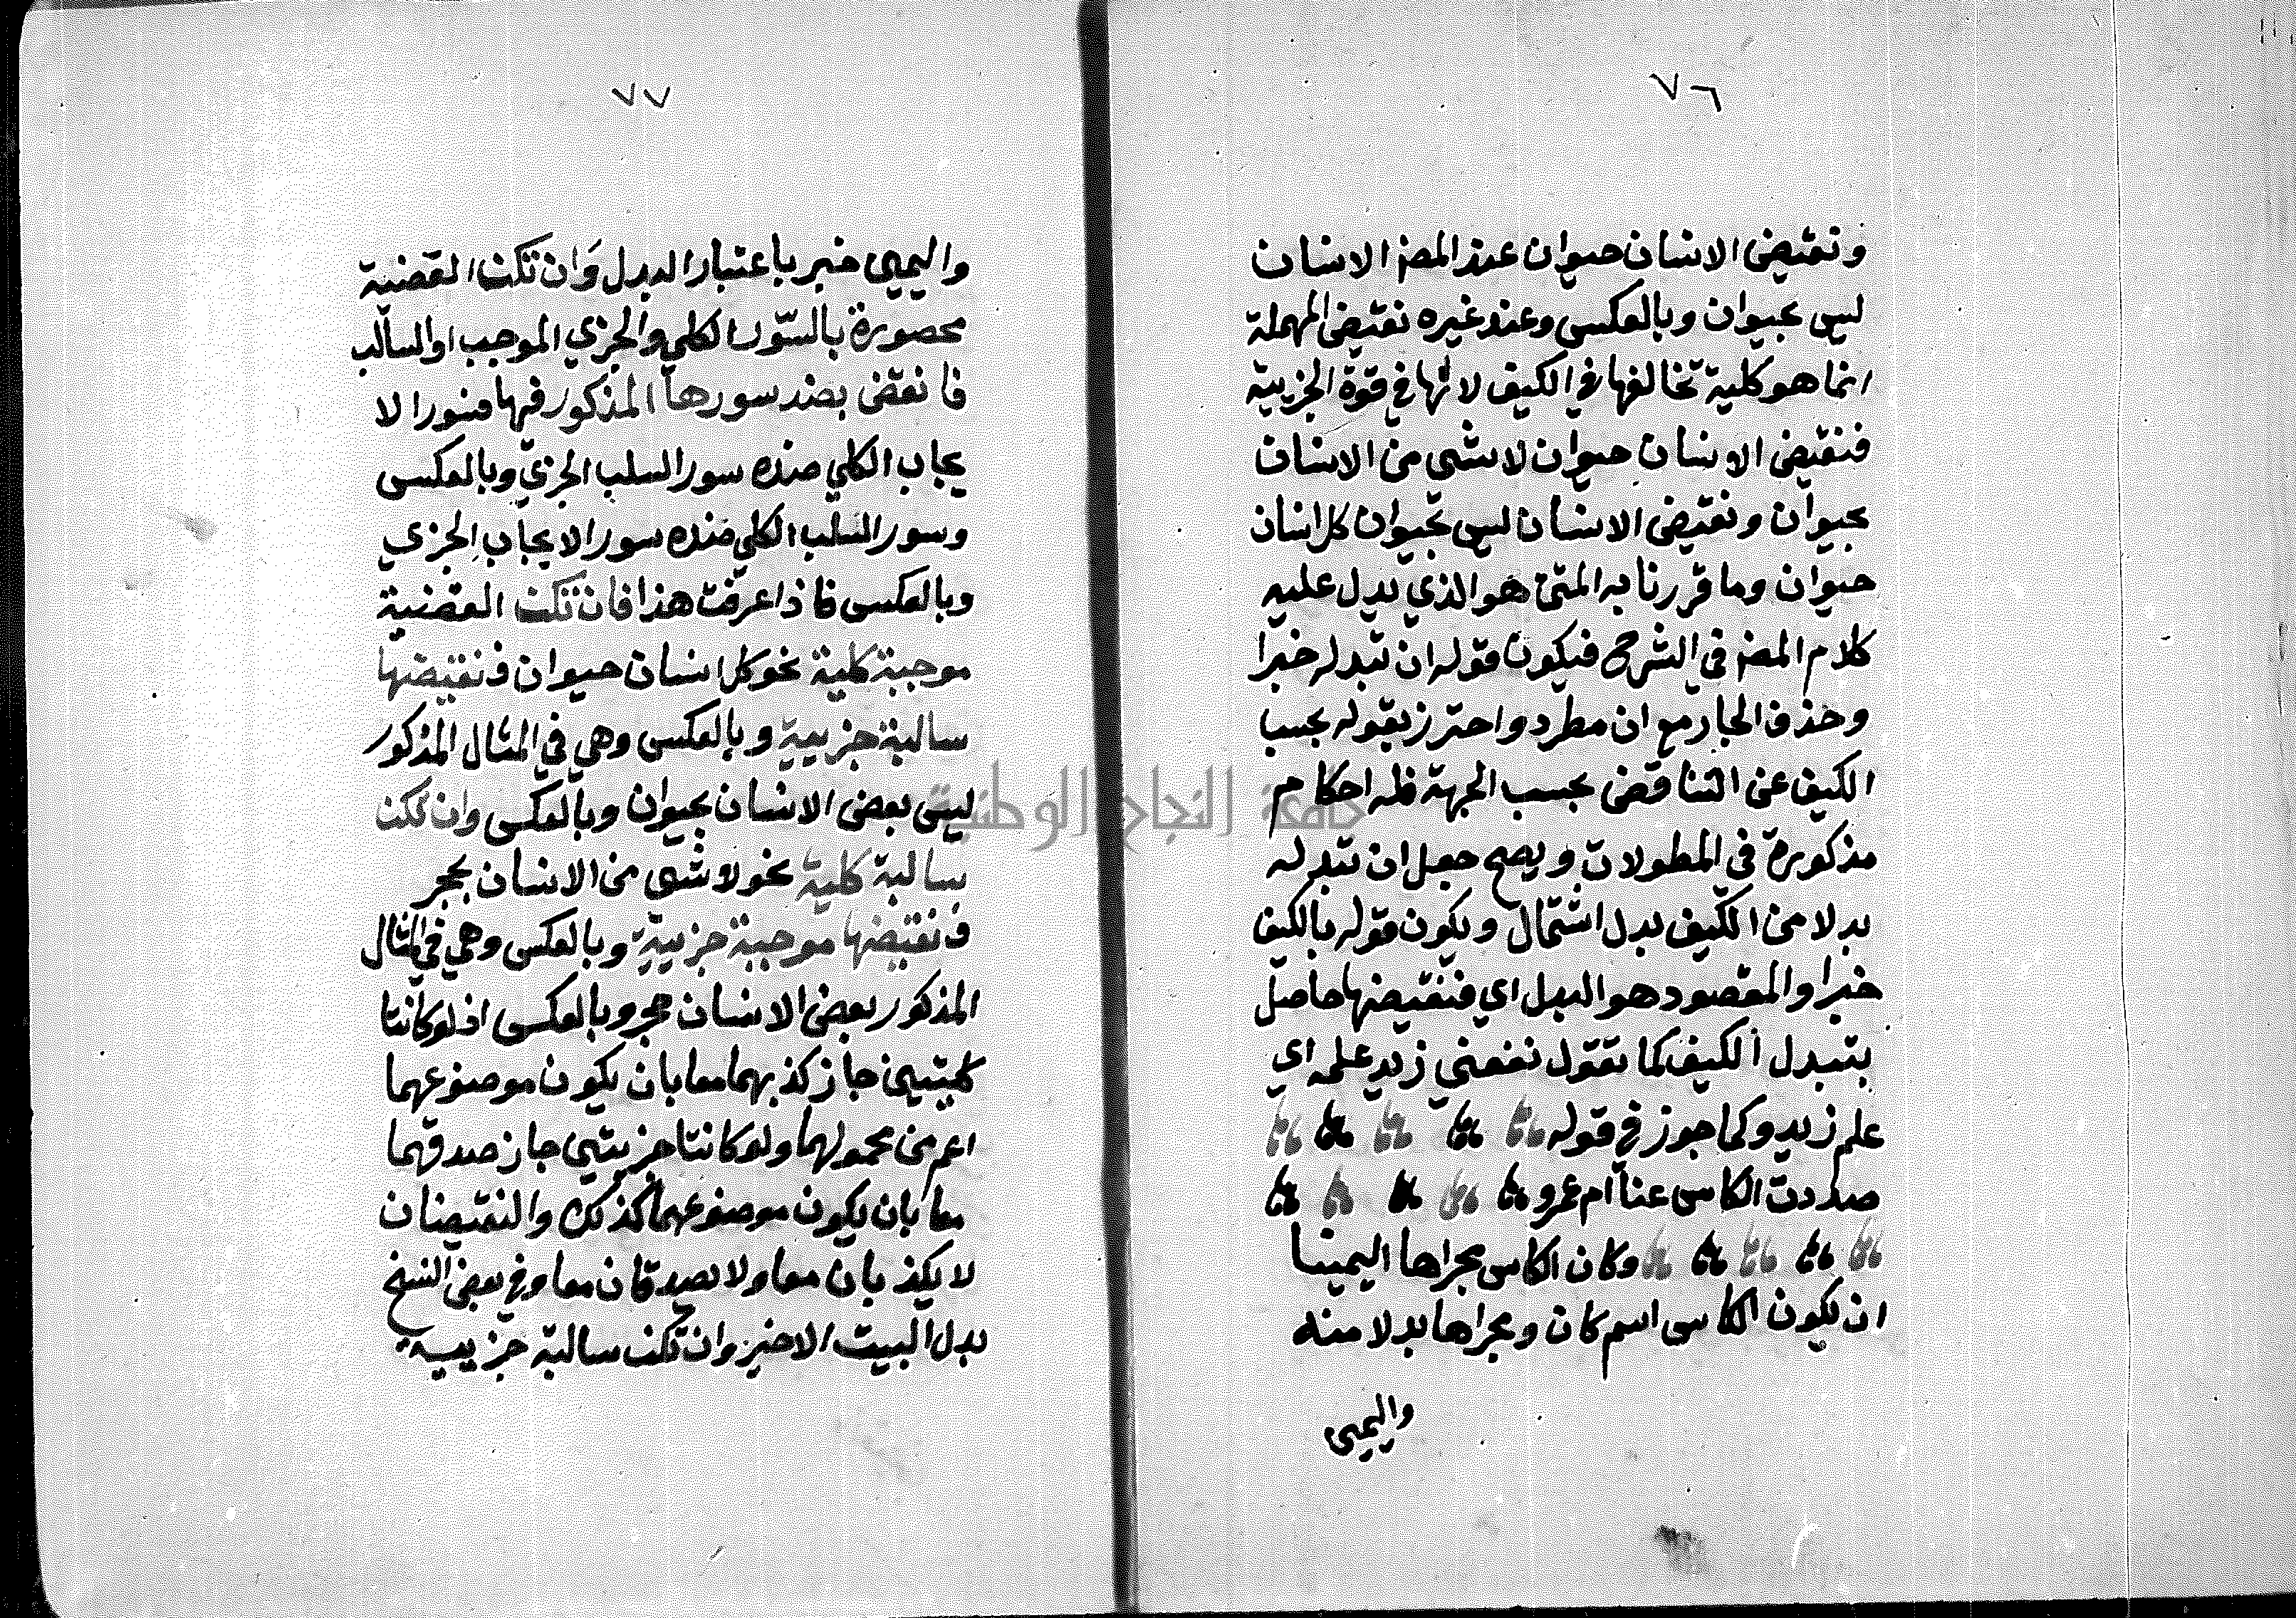 ٧٦
ونقيض الانسان حيوان عند المصنف الانسان
ليس بحيوان وبالعكس وعند غيره نقيض المهملة
انما هو كلية تخالفها في الكيف لانها في قوة الجزيية
فنقيض الانسان حيوان لا شي من الانسان
بحيوان ونقيض الانسان ليس بحيوان كل انسان
حيوان وما قررنا به المتن هو الذي يدل عليه
كلام المصنف في الشرح فيكون قوله ان تبدله خبرا
وحذف الجار مع ان مطرد واحترز بقوله بحسب
الكيف عن التناقض بحسب الجهة فله احكام
مذكورة في المطولات ويصح جعل ان تبدله
بدلا من الكيف بدل اشتمال ويكون قوله بالكيف
خبرا والمقصود هو البدل اي فنقيضها حاصل
بتبدل الكيف كما تقول نفعني زيد علمه اي
علم زيد وكما جوز في قوله
صددت الكاس عنا ام عمرو
وكان الكاس مجراها اليمينا
ان يكون الكاس اسم كان ومجراها بدلا منه
واليمين
٧٧
واليمين خبر باعتبار البدل وَان تكن القضية
محصورة بالسّور الكلي والجزي الموجب او السالب
فانقض بضد سورها المذكور فيها فسور الا
يجاب الكلي ضده سور السلب الجزي وبالعكس
وسور السلب الكلي ضده سور الايجاب الجزي
وبالعكس فاذا عرفت هذا فان تكن القضية
موجبة كلية نحو كل انسان حيوان فنقيضها
سالبة جزيية وبالعكس وهي في المثال المذكور
ليس بعض الانسان بحيوان وبالعكس وان تكن
سالبة كلية نحو لا شي من الانسان بحجر
فنقيضها موجبة جزيية وبالعكس وهي في المثال
المذكور بعض الانسان حجر وبالعكس اذ لو كانتا
كليتين جاز كذبهما معا بان يكون موضوعهما
اعم من محمولهما ولو كانتا جزيتين جاز صدقهما
معا بان يكون موضوعهما كذلك والنقيضان
لا يكذبان معا ولا يصدقان معا وفي بعض النسخ
بدل البيت الاخير وان تكن سالبة جزيية
جامعة النجاح الوطنية